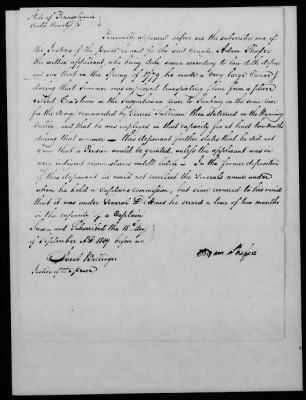 State of Pennsylvania
County Ss
Personally appeared before me the subscriber one of
the Justices of the peace in and for the said County, Adam Shaffer
the within applicant, who being duly sworn according to law doth depose
and say that in the Spring of 1779 he made a very large Canoe &
during that Summer was employed transporting flour from a place
called on the Susquehanna river to Sunbury on the same river
for the army commanded by General Sullivan then stationed in the Wyoming
Valley and that he was employed in that capacity for at least two months
during that summer — this deponent further states that he did not
know that a Pension would be granted, unless the applicant was in
very indigent circumstances untill lately — In the former deposition
of this deponent he could not recollect the Generals name under
whom he held a Captains commission, but since occurred to his mind
that it was under General he served a term of two months
in the capacity of a Captain
Sworn and Subscribed the 18th day
of September AD 1839 before me
Jacob
Justice of the peace
Adam Shaffer